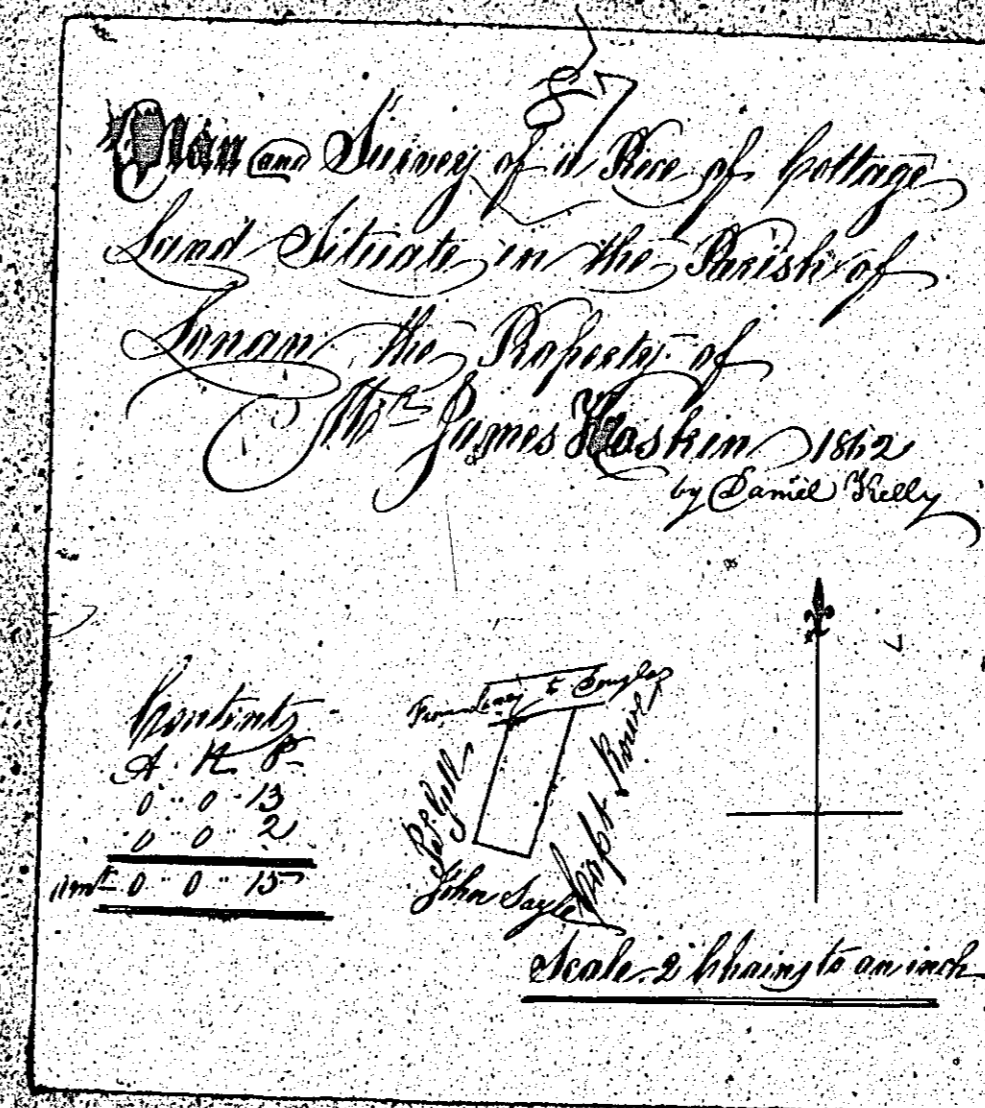 Plan and Survey of a Piece of Cottage
Land Situate in the Parish of
Lonan the Property of
Mr James Kaskin 1862
by Daniel Kelly
Contents
A. R. P.
0 .. 0 .. 13
0 0 .. 2
Amt 0 .. 0 .. 15
From Laxey to Douglas
Gell
John Sayle
Road
Scale 2 Chains to an inch